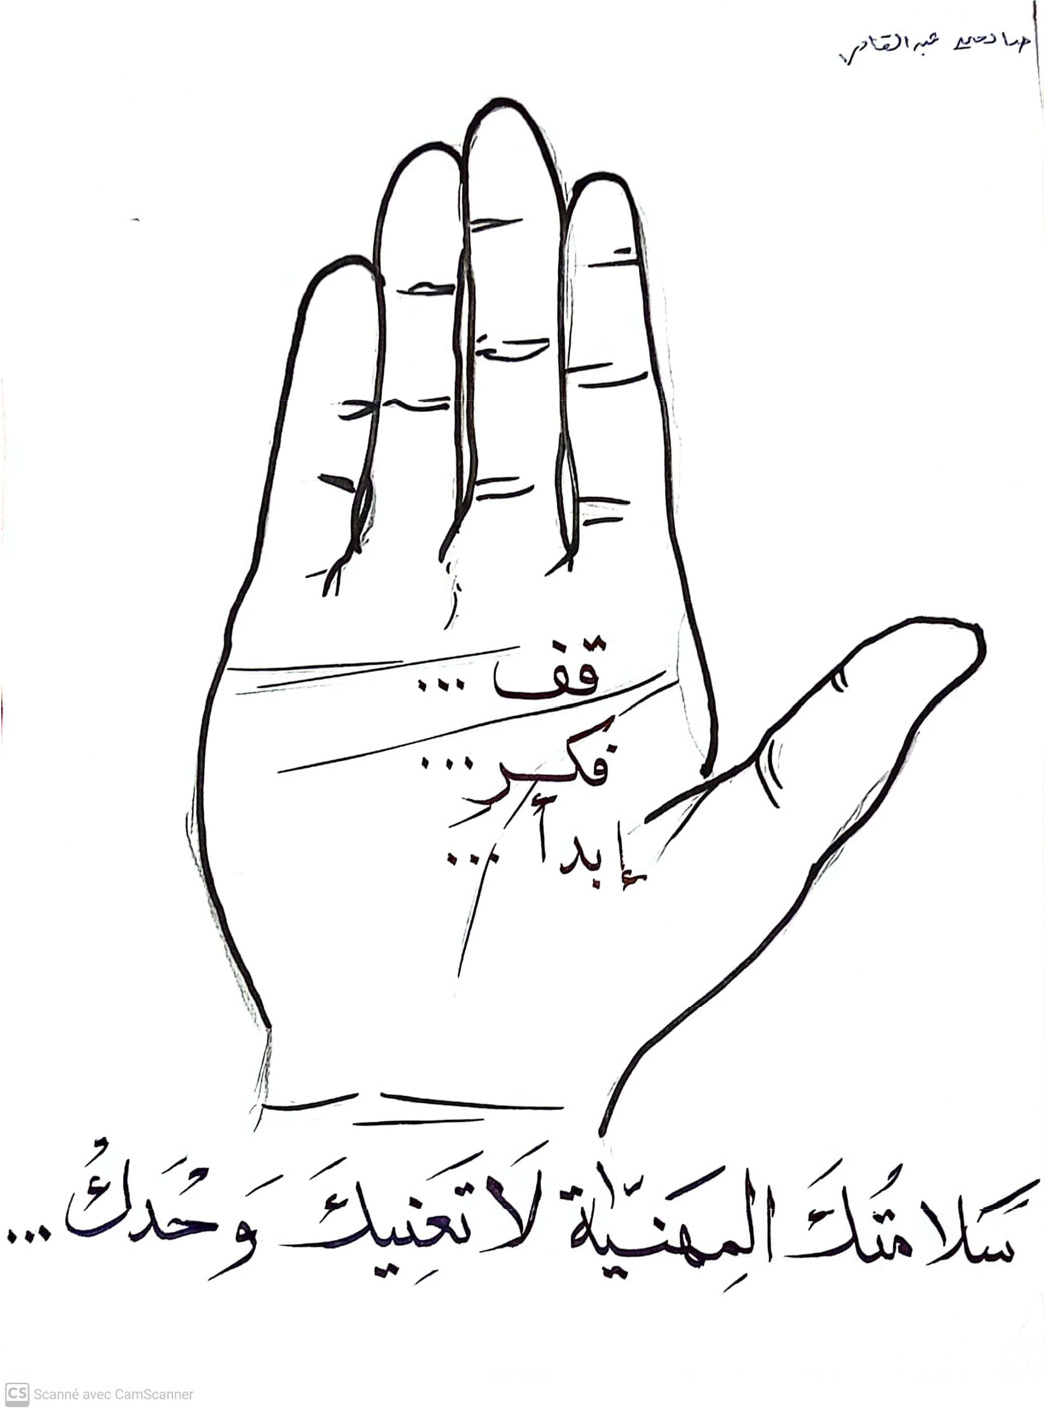 عبد القادر
قف ...
فكر ...
إبدأ ...
سَلامَتُكَ المِهَنيَّة لَا تَعنِيكَ وَحْدَكْ ...
CS Scanné avec CamScanner